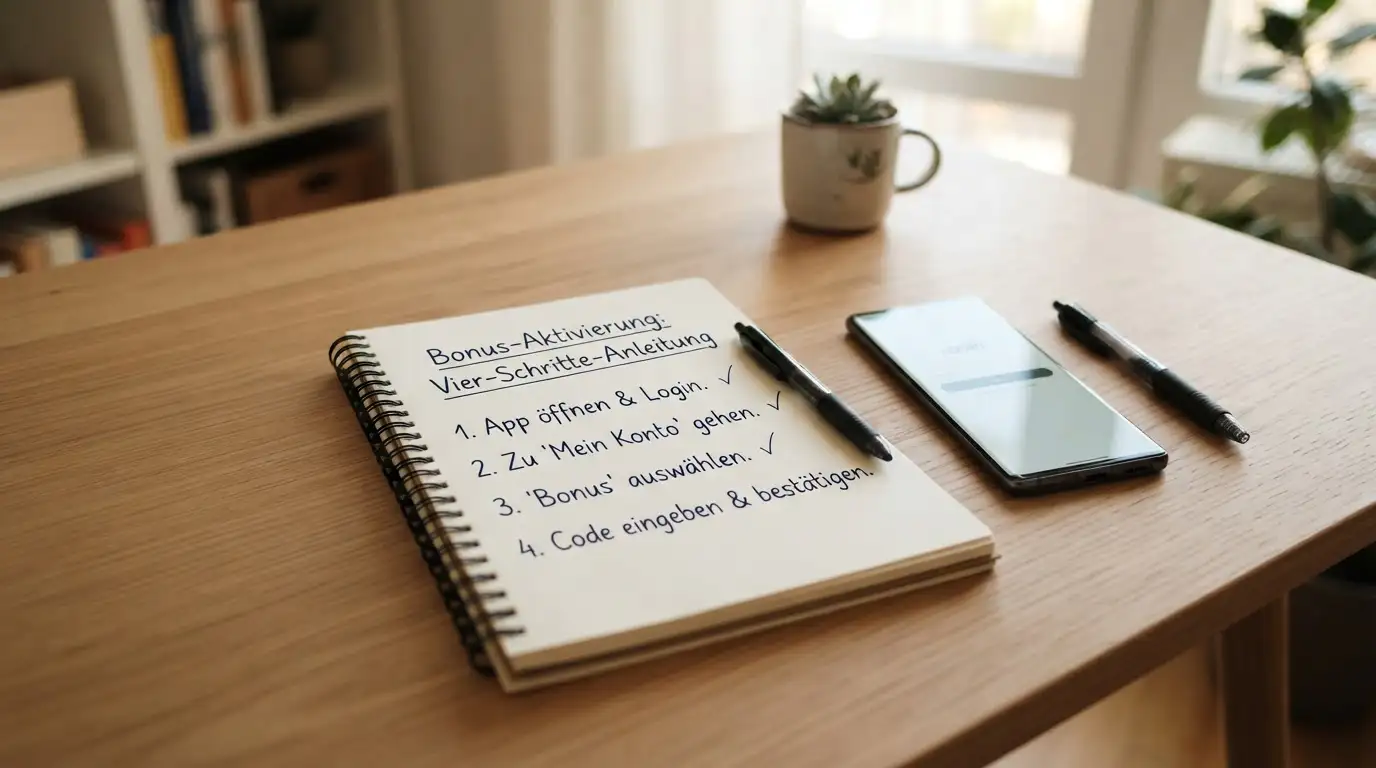 Bonus-Aktivierung:
Vier-Schritte-Anleitung
1. App öffnen & Login. ✓
2. Zu 'Mein Konto' gehen. ✓
3. 'Bonus' auswählen. ✓
4. Code eingeben & bestätigen.